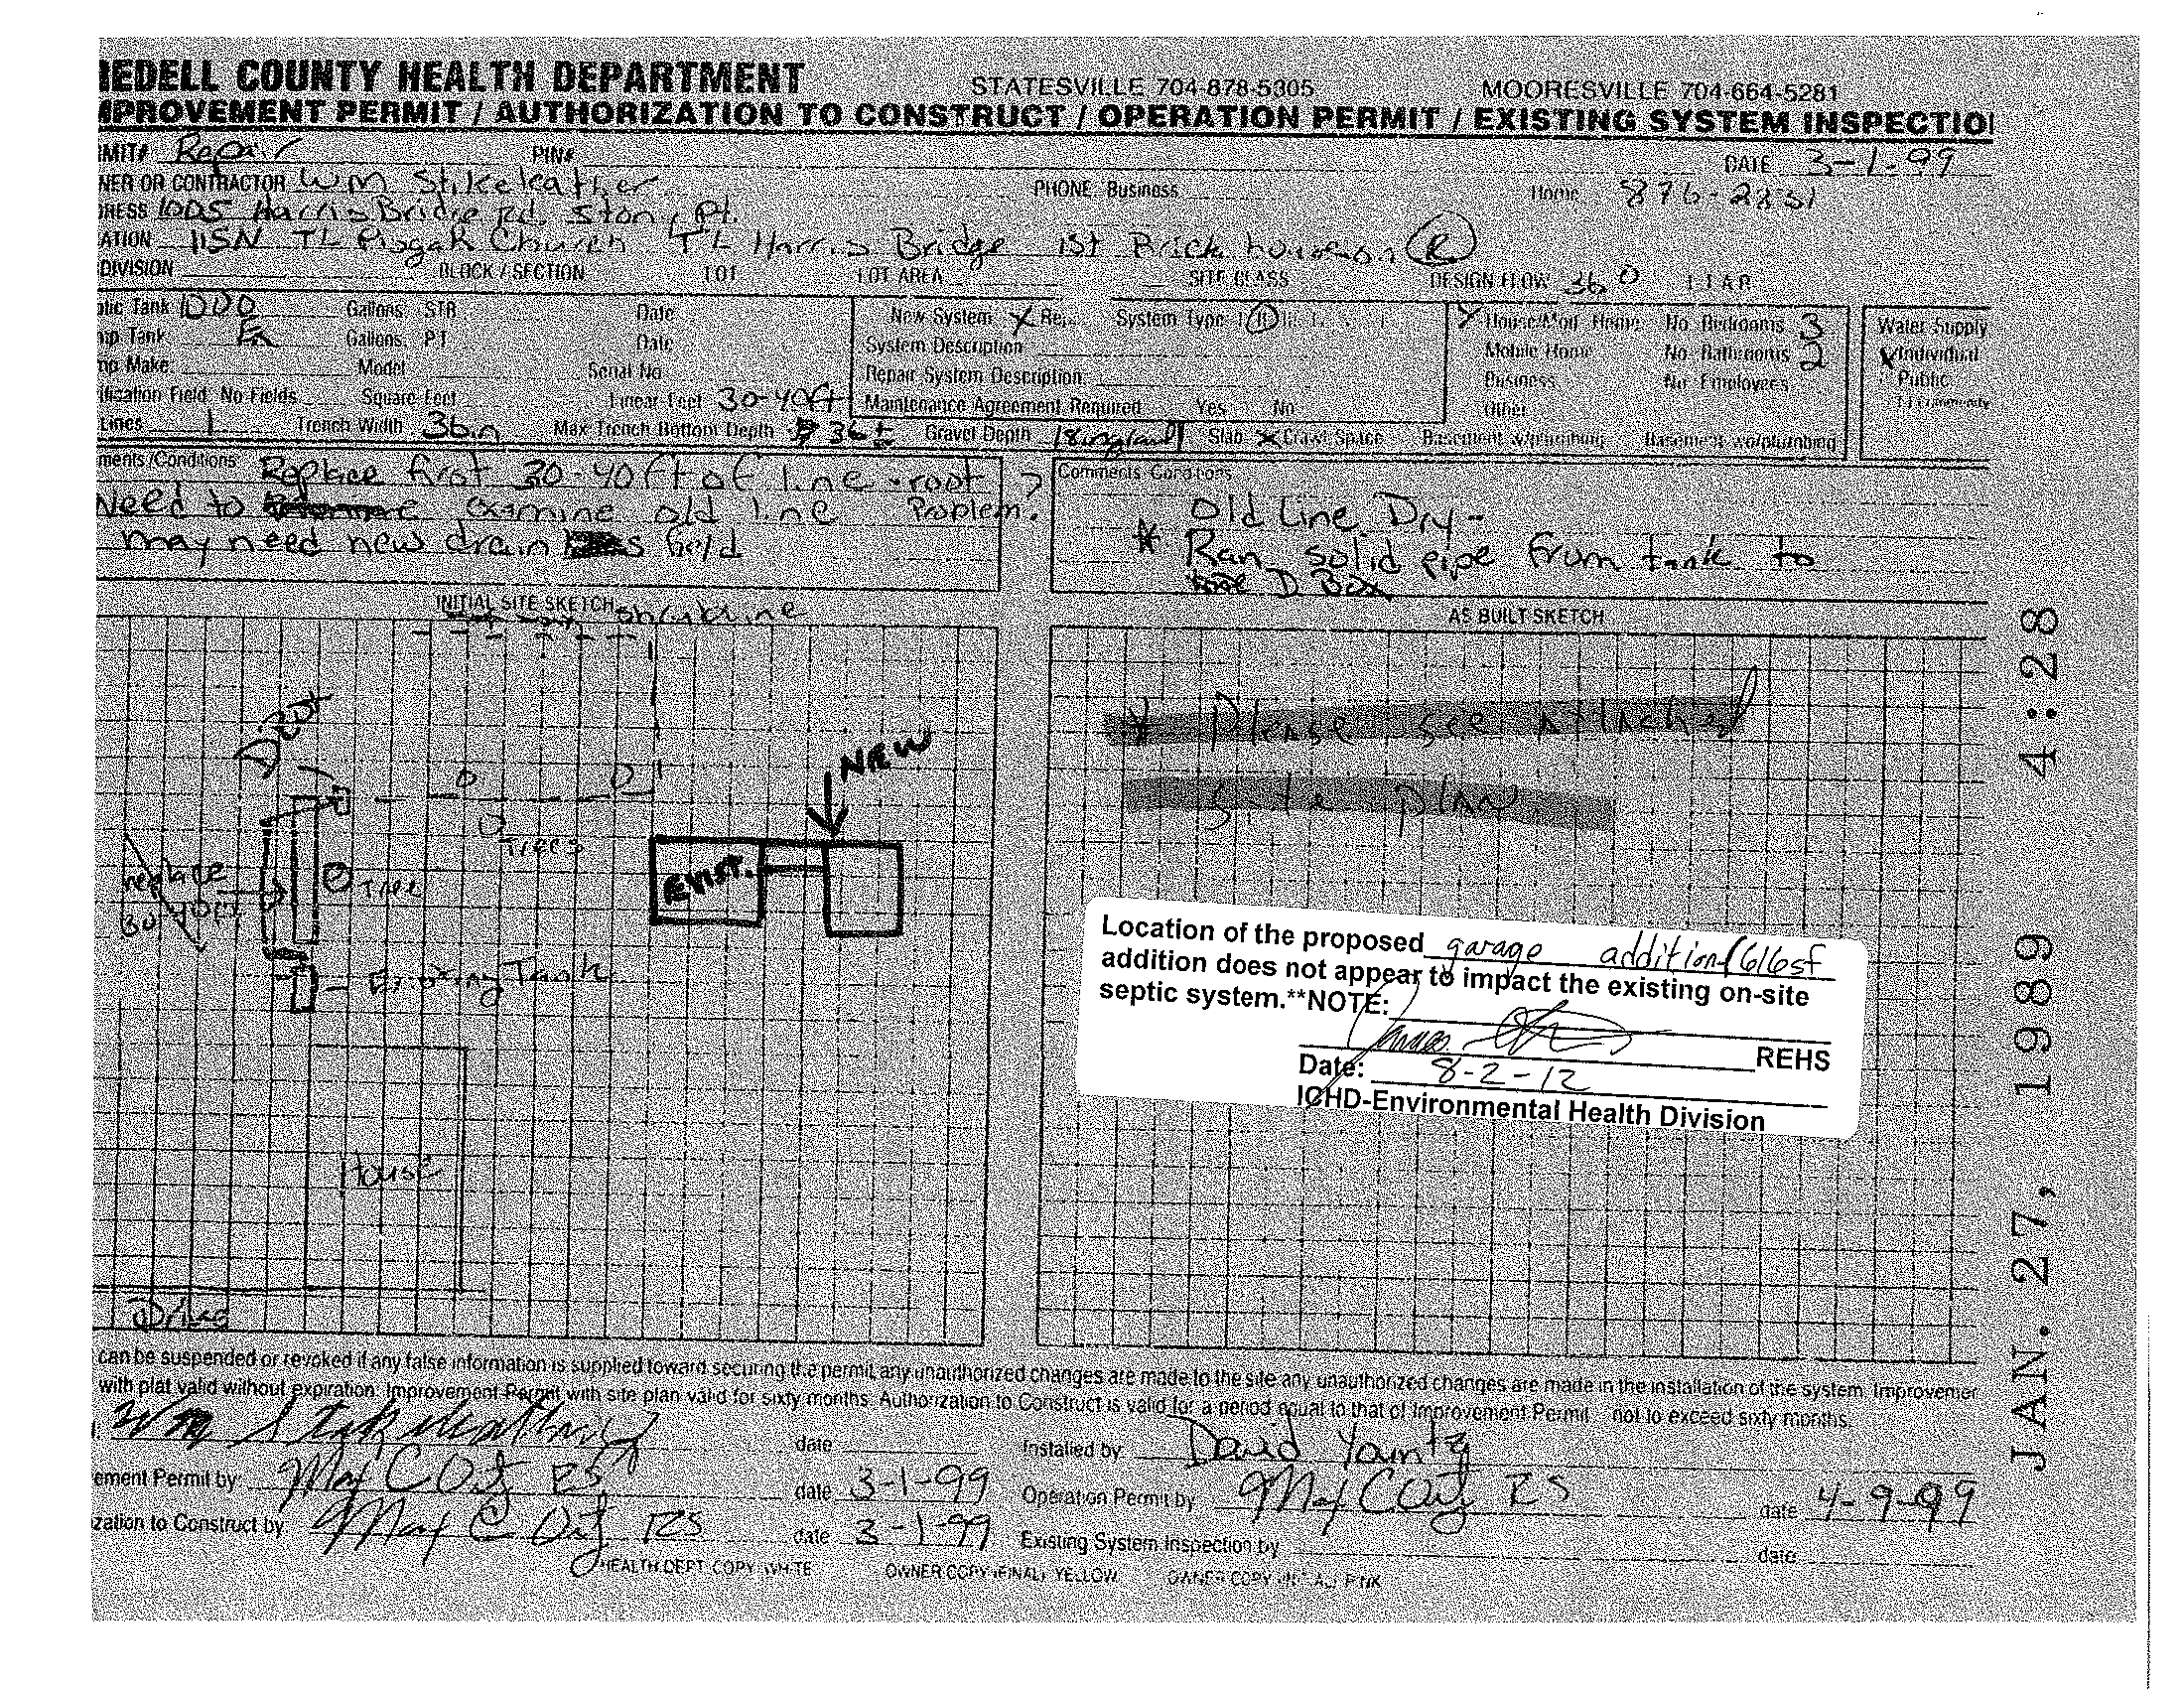 IEDELL COUNTY HEALTH DEPARTMENT STATESVILLE 704-878-5305 MOORESVILLE 704-664-5281
MPROVEMENT PERMIT / AUTHORIZATION TO CONSTRUCT / OPERATION PERMIT / EXISTING SYSTEM INSPECTIO
MIT# Repair PIN# DATE 3-1-99
NER OR CONTRACTOR Wm Stikeleather PHONE Business Home 876-2851
RESS 1005 Harris Bridge Rd. Stony Pt.
ATION 115N TL Pisgah Church TL Harris Bridge 1st Brick house on R
DIVISION BLOCK / SECTION LOT LOT AREA SITE CLASS DESIGN FLOW 360 LTAR
tic Tank 1000 Gallons STB Date
mp Tank Gallons PT Date
mp Make Model Serial No
ification Field No Fields Square Feet Linear Feet 30-40ft
Lines 1 Trench Width 36in Max Trench Bottom Depth 36 Gravel Depth
New System X Rep. System Type II
System Description
Repair System Description
Maintenance Agreement Required Yes No
House/Mod Home No Bedrooms 3
Mobile Home No Bathrooms 2
Business No Employees
Other
Slab X Crawl Space Basement w/plumbing Basement wo/plumbing
Water Supply
Individual
Public
ments/Conditions Replace first 30-40 ft of line - root
Need to examine old line Problem?
may need new drain field
Comments Conditions
Old Line Dry -
* Ran solid pipe from tank to
D Box
INITIAL SITE SKETCH
AS BUILT SKETCH
* Please see attached
site plan
NEW
EXIST.
Trees
Tree
replace
30-40ft
Existing Tank
House
Drive
Location of the proposed garage addition/616sf
addition does not appear to impact the existing on-site
septic system.**NOTE:
REHS
Date: 8-2-12
ICHD-Environmental Health Division
JAN. 27, 1989 4:28
can be suspended or revoked if any false information is supplied toward securing the permit, any unauthorized changes are made to the site any unauthorized changes are made in the installation of the system. Improvemer
with plat valid without expiration. Improvement Permit with site plan valid for sixty months. Authorization to Construct is valid for a period equal to that of Improvement Permit not to exceed sixty months.
Wm Stikeleather date Installed by David Yountz
ement Permit by: date 3-1-99 Operation Permit by date 4-9-99
zation to Construct by date 3-1-99 Existing System Inspection by date
HEALTH DEPT COPY WHITE OWNER COPY (FINAL) YELLOW OWNER COPY PINK